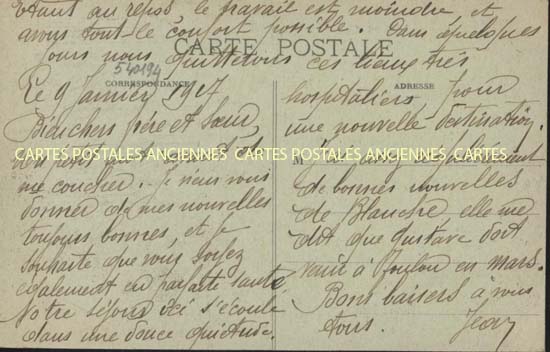 Étant au repos le travail est moindre et
avons tout le confort possible. Dans quelques
jours nous quitterons ces lieux très
CARTE POSTALE
540194
CORRESPONDANCE
ADRESSE
Le 9 Janvier 1917
Bien chers frère et Sœur
CARTES POSTALES ANCIENNES CARTES POSTALES ANCIENNES CARTES POSTALES ANCIENNES
me coucher. Je viens vous
donner de mes nouvelles
toujours bonnes, et je
souhaite que vous soyez
également en parfaite santé.
Notre séjour ici s'écoule
dans une douce quiétude.
hospitaliers pour
une nouvelle destination.
M
de bonnes nouvelles
de Blanche, elle me
dit que Gustave doit
venir à Toulon en mars.
Bons baisers à vous
tous. Jean